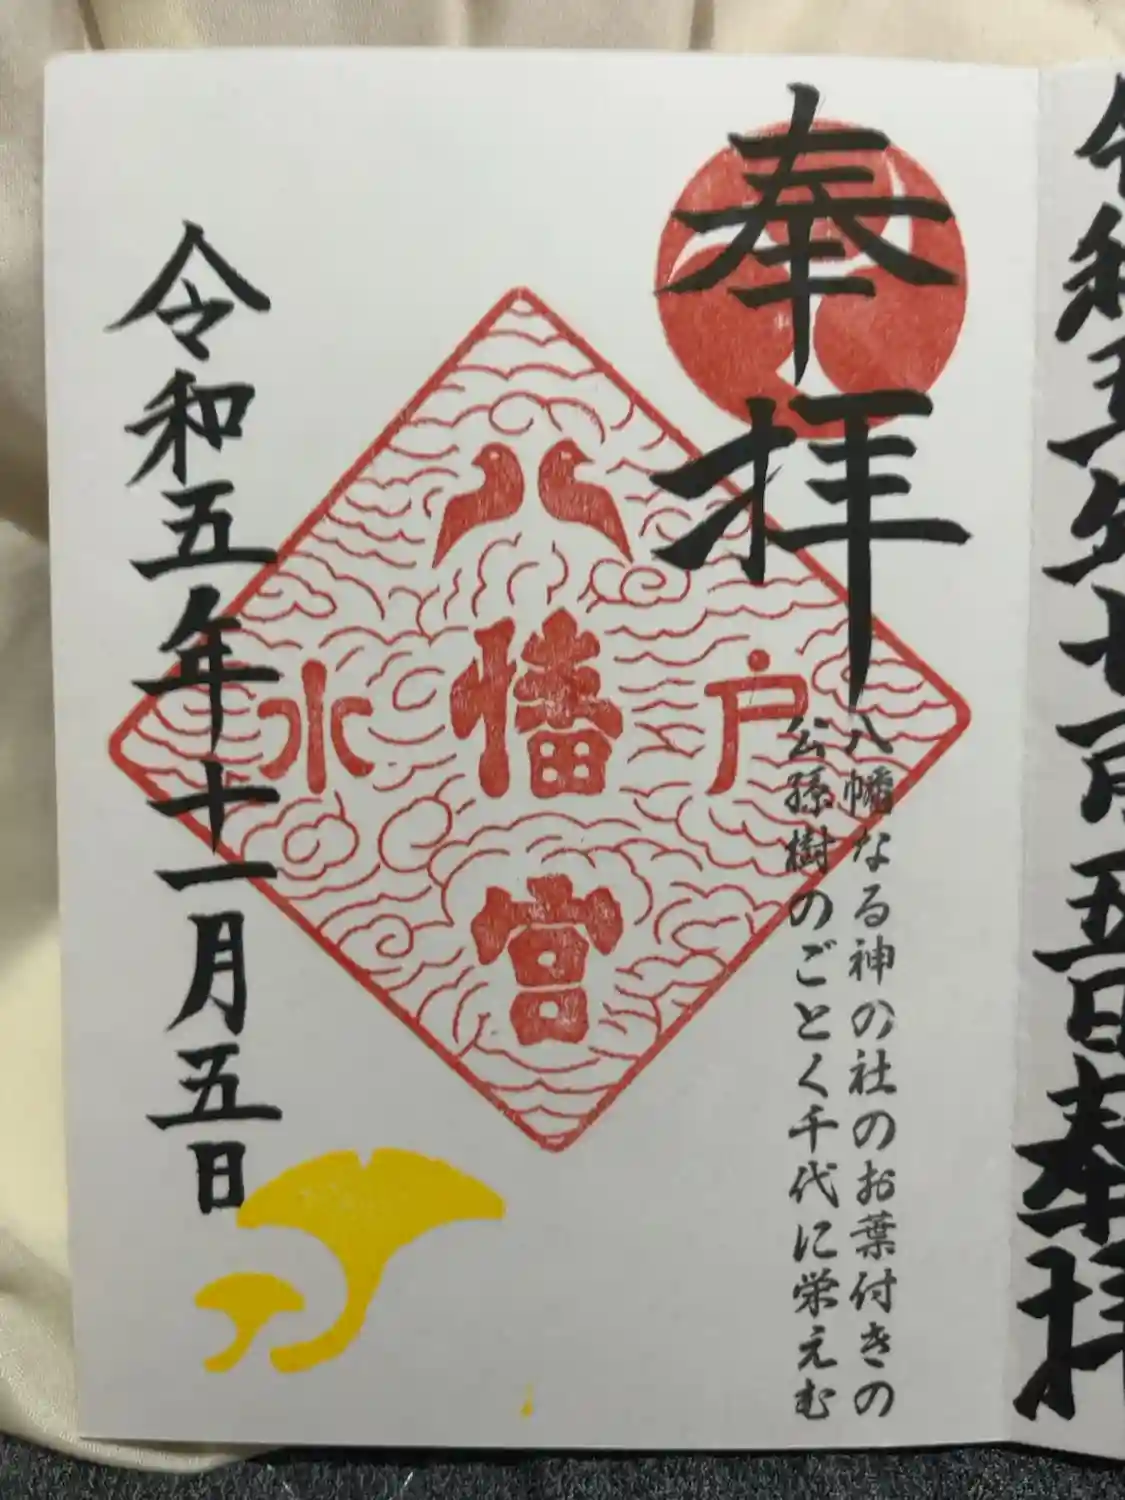 令和五年七月五日奉拝
奉拝
八幡なる神の社のお葉付きの
公孫樹のごとく千代に栄えむ
水戸
八幡宮
令和五年十一月五日